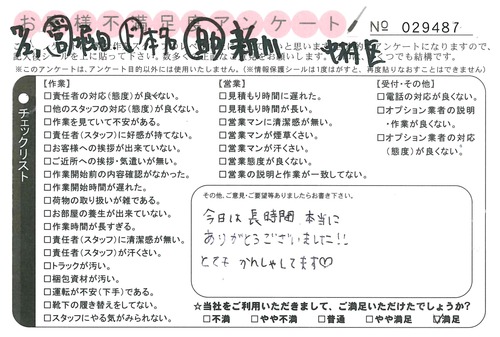 お客様不満足度アンケート
No 029487
※このアンケートは、アンケート目的以外には使用いたしません。(※情報保護シールは1度はがすと、再度貼りなおすことはできません)
チェックリスト
【作業】
□責任者の対応(態度)が良くない。
□他のスタッフの対応(態度)が良くない。
□作業を見ていて不安がある。
□責任者(スタッフ)に好感が持てない。
□お客様への挨拶が出来ていない。
□ご近所への挨拶・気遣いが無い。
□作業開始前の内容確認がなかった。
□作業開始時間が遅れた。
□荷物の取り扱いが雑である。
□お部屋の養生が出来ていない。
□作業時間が長すぎる。
□責任者(スタッフ)に清潔感が無い。
□責任者(スタッフ)が汗くさい。
□トラックが汚い。
□梱包資材が汚い。
□運転が不安(下手)である。
□靴下の履き替えをしてない。
□スタッフにやる気がみられない。
【営業】
□見積もり時間に遅れた。
□見積もり時間が長い。
□営業マンに清潔感が無い。
□営業マンが煙草くさい。
□営業マンが汗くさい。
□営業態度が良くない。
□営業の説明と作業が一致してない。
【受付・その他】
□電話の対応が良くない。
□オプション業者の説明・作業が良くない。
□オプション業者の対応(態度)が良くない。
その他、ご意見・ご要望等ありましたらお書き下さい。
今日は長時間本当に
ありがとうございました!!
とても かんしゃしてます♡
☆当社をご利用いただきまして、ご満足いただけたでしょうか?
□不満 □やや不満 □普通 □やや満足 ☑満足